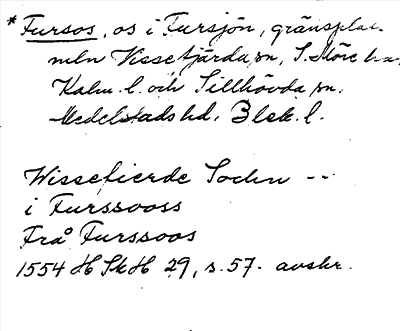 * Fursos, os i Fursjön, gränsplac.
mln Vissefjärda sn, S. Möre hd,
Kalm. l. och Sillhövda sn.
Medelstads hd. Blek. l.
Wissefierde Sochn --
i Furssooss
Frå Furssoos
1554 H Sk H 29, s. 57. avskr.